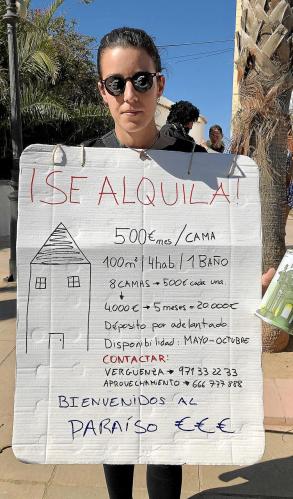 ¡SE ALQUILA!
500€ mes/CAMA
100m² / 4hab / 1 BAÑO
8 CAMAS → 500€ cada una.
4.000€ → 5 meses = 20.000€
Déposito por adelantado
Disponibilidad: MAYO-OCTUBRE
CONTACTAR:
VERGÜENZA → 971 33 22 33
APROVECHAMIENTO → 666 777 888
BIENVENIDOS AL
PARAÍSO €€€